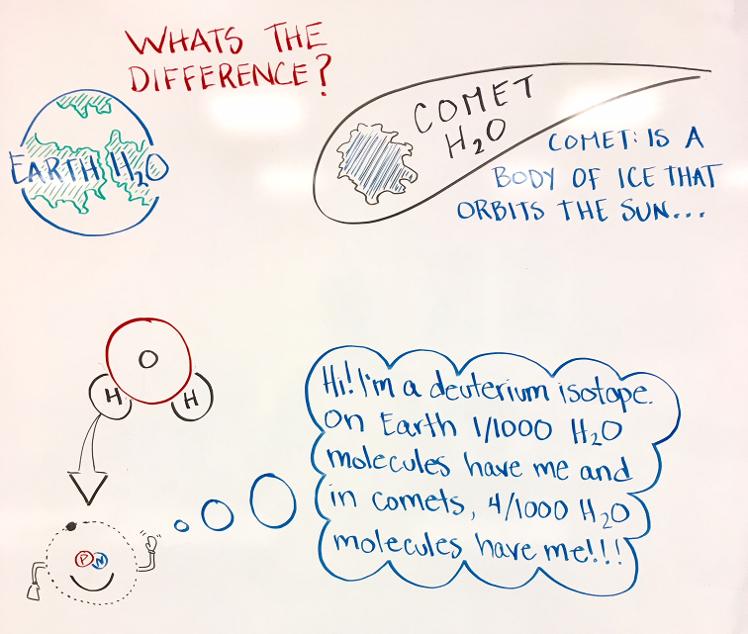 WHATS THE
DIFFERENCE?
EARTH H₂O
COMET
H₂O
COMET: IS A
BODY OF ICE THAT
ORBITS THE SUN...
O
H
H
P N
Hi! I'm a deuterium isotope.
On Earth 1/1000 H₂O
molecules have me and
in comets, 4/1000 H₂O
molecules have me!!!